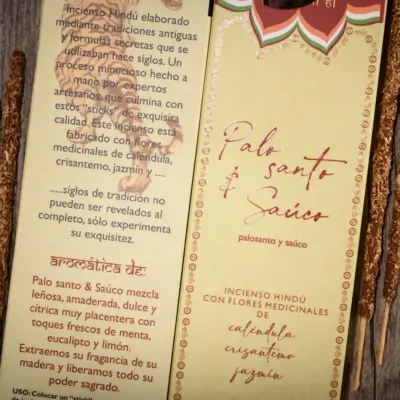 Incienso Hindú elaborado
mediante tradiciones antiguas
y formulas secretas que se
utilizaban hace siglos. Un
proceso minucioso hecho a
mano por expertos
artesanos, que culmina con
estos "sticks" de exquisita
calidad. Este incienso está
fabricado con flores
medicinales de caléndula,
crisantemo, jazmín y ....
.....siglos de tradición no
pueden ser revelados al
completo, sólo experimenta
su exquisitez.
aromática de:
Palo santo & Saúco mezcla
leñosa, amaderada, dulce y
cítrica muy placentera con
toques frescos de menta,
eucalipto y limón.
Extraemos su fragancia de su
madera y liberamos todo su
poder sagrado.
USO: Colocar un "stick"
Palo santo
& Saúco
palosanto y saúco
INCIENSO HINDÚ
CON FLORES MEDICINALES
DE
caléndula
crisantemo
jazmín